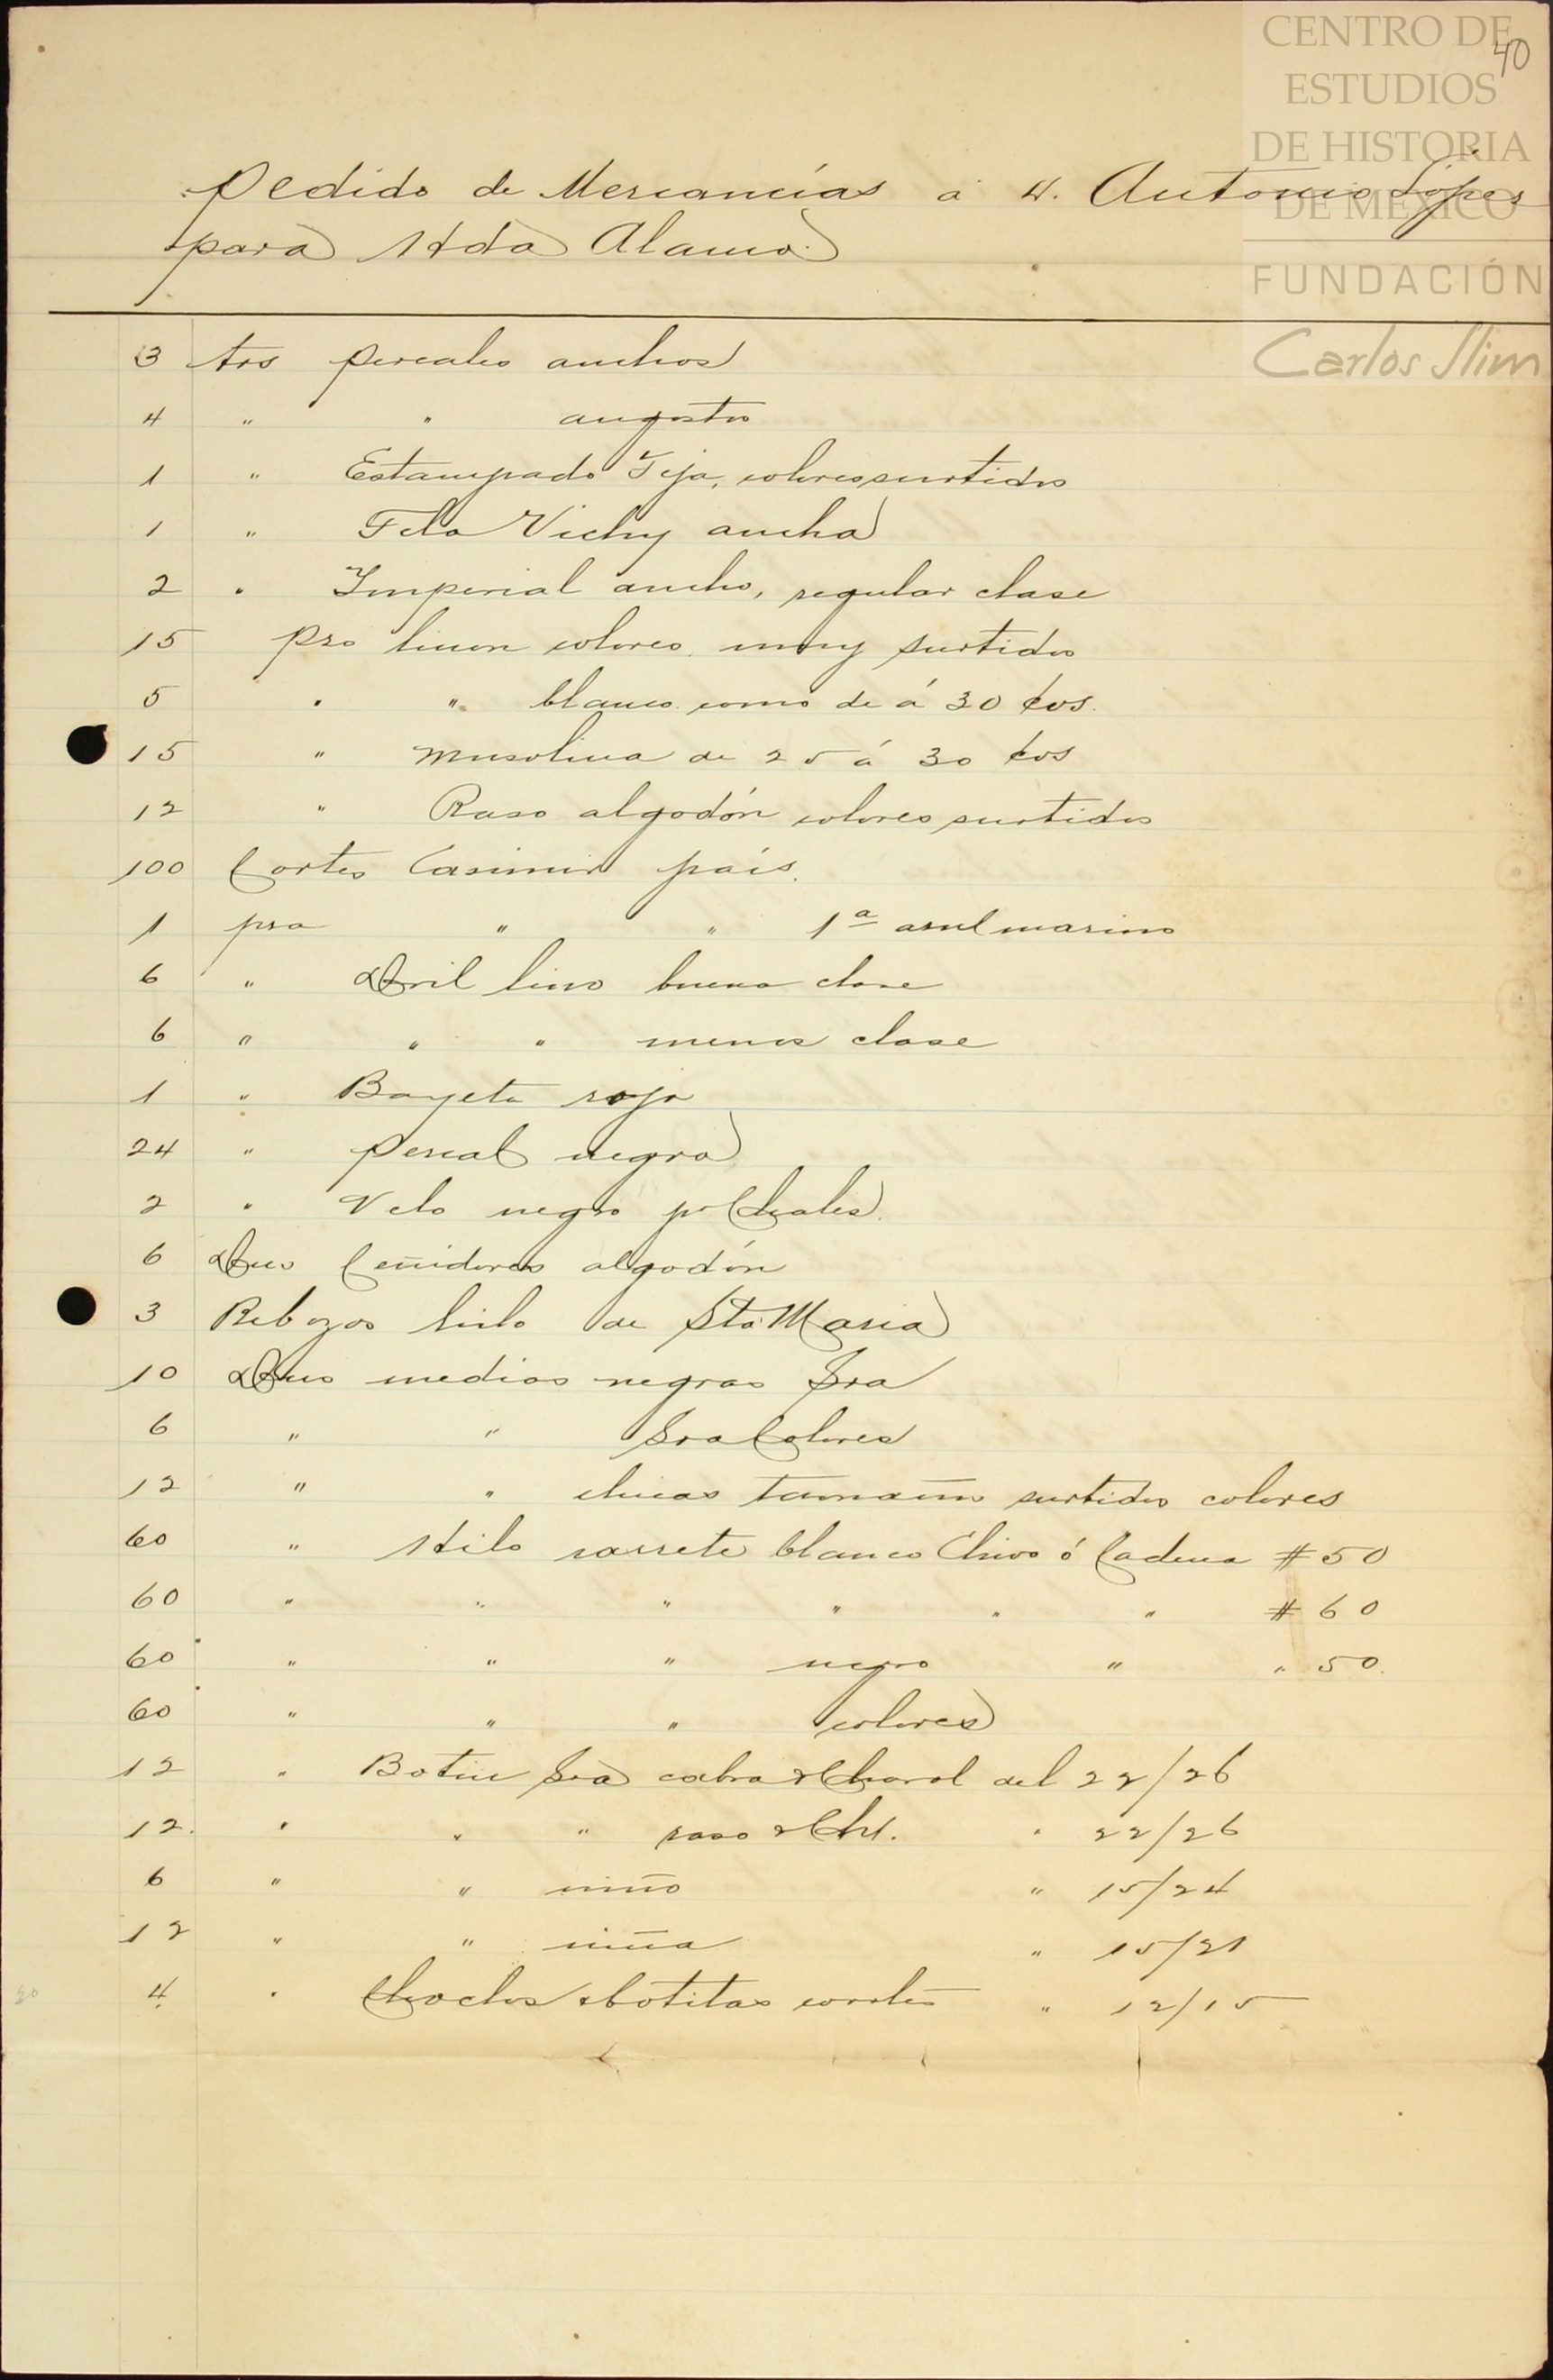 CENTRO DE
ESTUDIOS
DE HISTORIA
DE MÉXICO
FUNDACIÓN
Carlos Slim
40
Pedido de Mercancías a Antonio López
para Hda Alamo
3 trs percales anchos
4 " " angostos
1 " Estampado Teja, colores surtidos
1 " Tela Vichy ancha
2 " Imperial ancho, regular clase
15 pzs linon colores muy surtidos
5 " " blanco como de á 30 ¢vs.
15 " Musolina de 25 á 30 ¢vs
12 " Raso algodón colores surtidos
100 Cortes Casimir país.
1 pza " " 1ª azul marino
6 " Dril lino buena clase
6 " " " menos clase
1 " Bayeta roja
24 " percal negro
2 " Velo negro pª Chales.
6 Dnas Ceñidores algodón
3 Rebozos hilo de Sta Maria
10 Dnas medias negras Sra
6 " " Sra Colores
12 " " chicas tamaños surtidos colores
60 " Hilo carrete blanco Chivo ó Cadena # 50
60 " " " " " " # 60
60 " " " negro " " 50.
60 " " " colores
12 " Botin Sra cabra y Charol del 22/26
12. " " " raso y Chl. " 22/26
6 " " niño " 15/24
12 " " niña " 15/21
20 4. " Choclos y botitas " 12/15